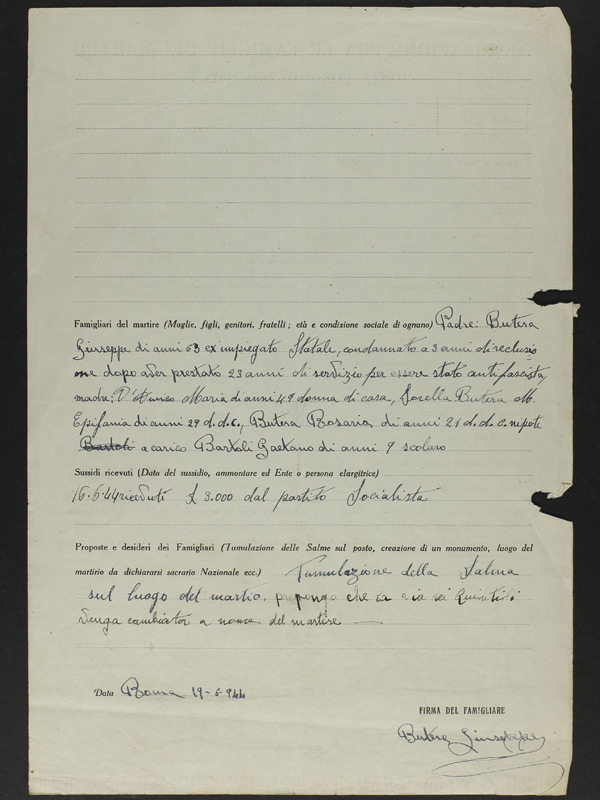 Famigliari del martire (Moglie, figli, genitori, fratelli; età e condizione sociale di ognuno) Padre: Butera
Giuseppe di anni 63 ex impiegato Statale, condannato a 3 anni di reclusio
ne dopo aver prestato 23 anni di servizio per essere stato antifascista,
madre: D'Amico Maria di anni 49 donna di casa, Sorella Butera M.
Epifania di anni 29 d.d.c., Butera Rosaria di anni 21 d.d.c. nipote
Bartoli a carico Bartoli Gaetano di anni 9 scolaro
Sussidi ricevuti (Data del sussidio, ammontare ed Ente o persona elargitrice)
16-6-44 ricevuti £ 3.000 dal partito Socialista
Proposte e desideri dei Famigliari (Tumulazione delle Salme sul posto, creazione di un monumento, luogo del
martirio da dichiararsi sacrario Nazionale ecc.) Tumulazione della Salma
sul luogo del martirio, propongo che la via dei Quintili
venga cambiata a nome del martire
Data Roma 19-6-944
FIRMA DEL FAMIGLIARE
Butera Giuseppe